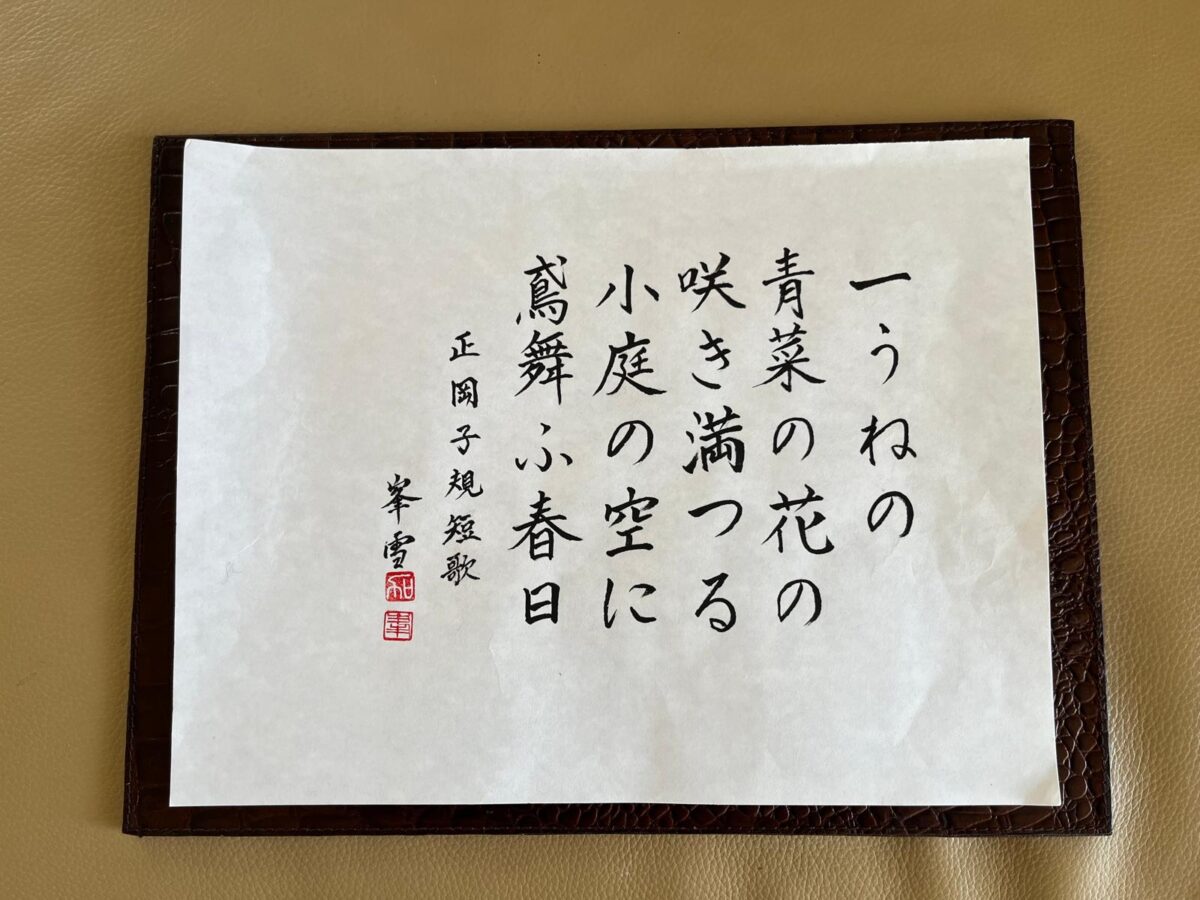 一うねの
青菜の花の
咲き満つる
小庭の空に
鳶舞ふ春日
正岡子規短歌
峯雪